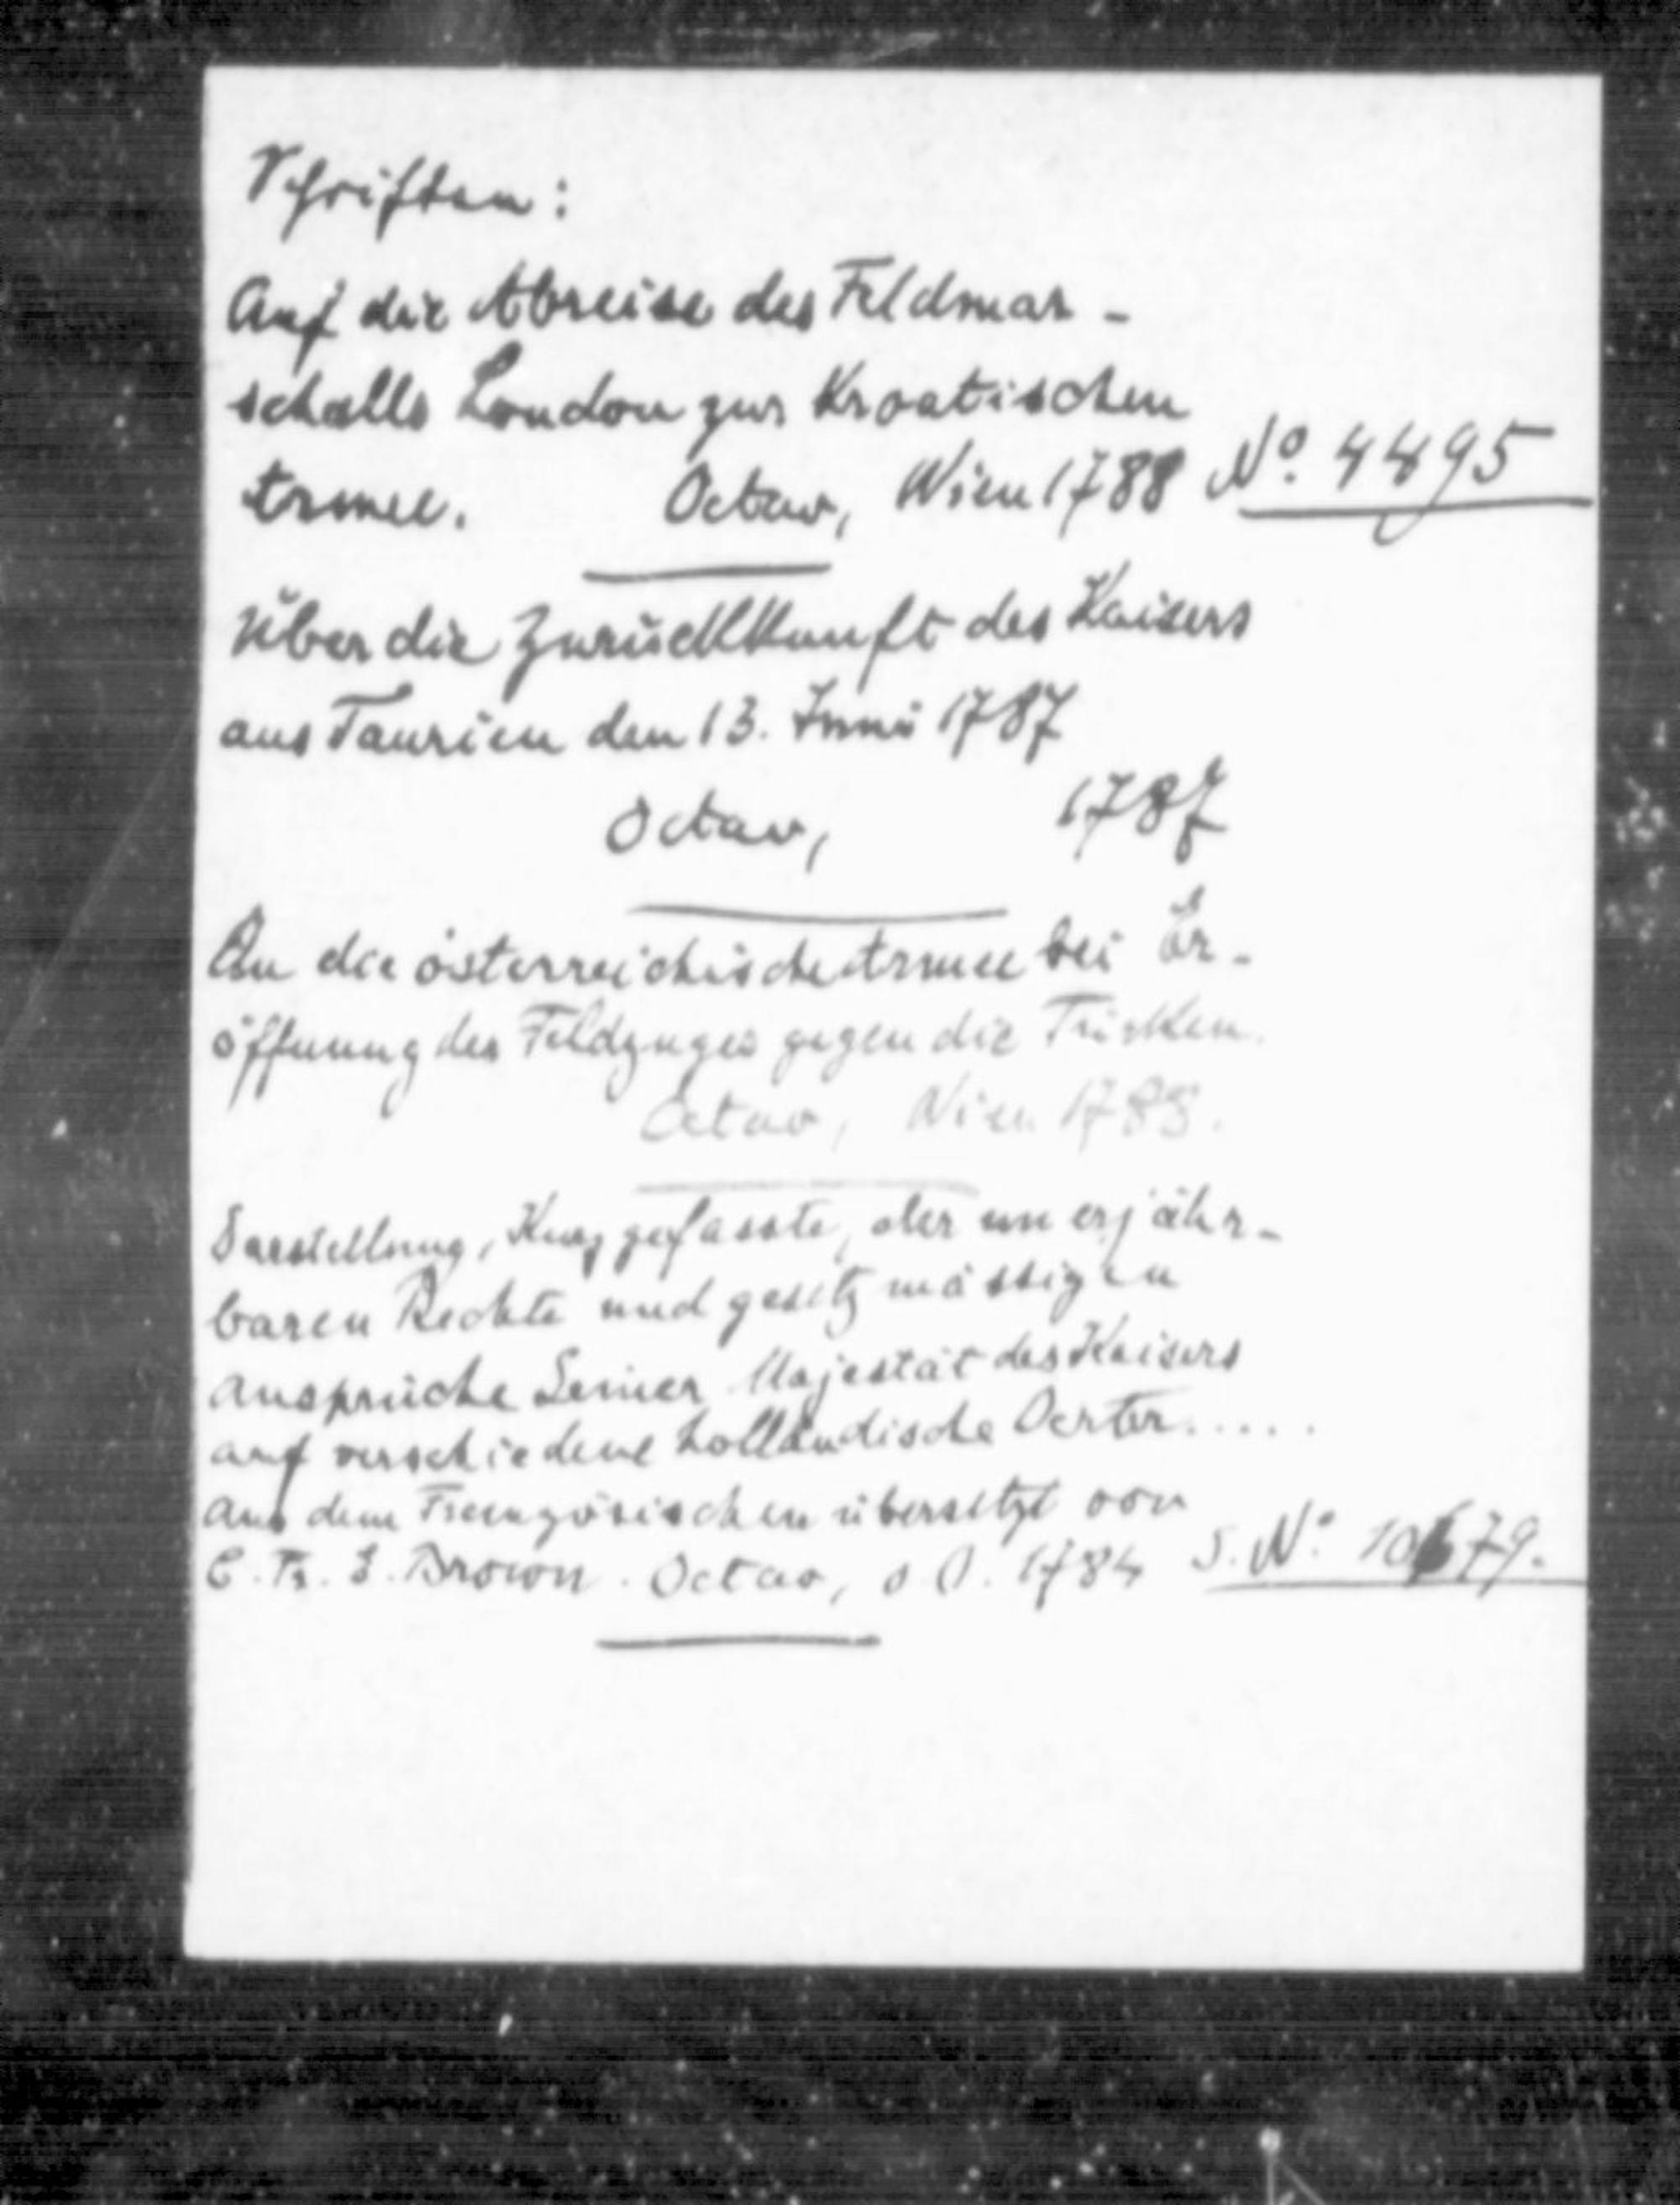 Schriften:
Auf die Abreise des Feldmar-
schalls Loudon zur Kroatischen
Armee. Octav, Wien 1788 No. 4495
Über die Zurückkunft des Kaisers
aus Taurien den 13. Juni 1787
Octav, 1787
An die österreichische Armee bei Er-
öffnung des Feldzuges gegen die Türken.
Octav, Wien 1788.
Darstellung, Kurz gefasste, der unverjähr-
baren Rechte und gesetzmässigen
Ansprüche Seiner Majestät des Kaisers
auf verschiedene holländische Oerter.....
Aus dem Französischen übersetzt von
C. Fr. J. Brown. Octav, o. O. 1784 S. No. 10679.